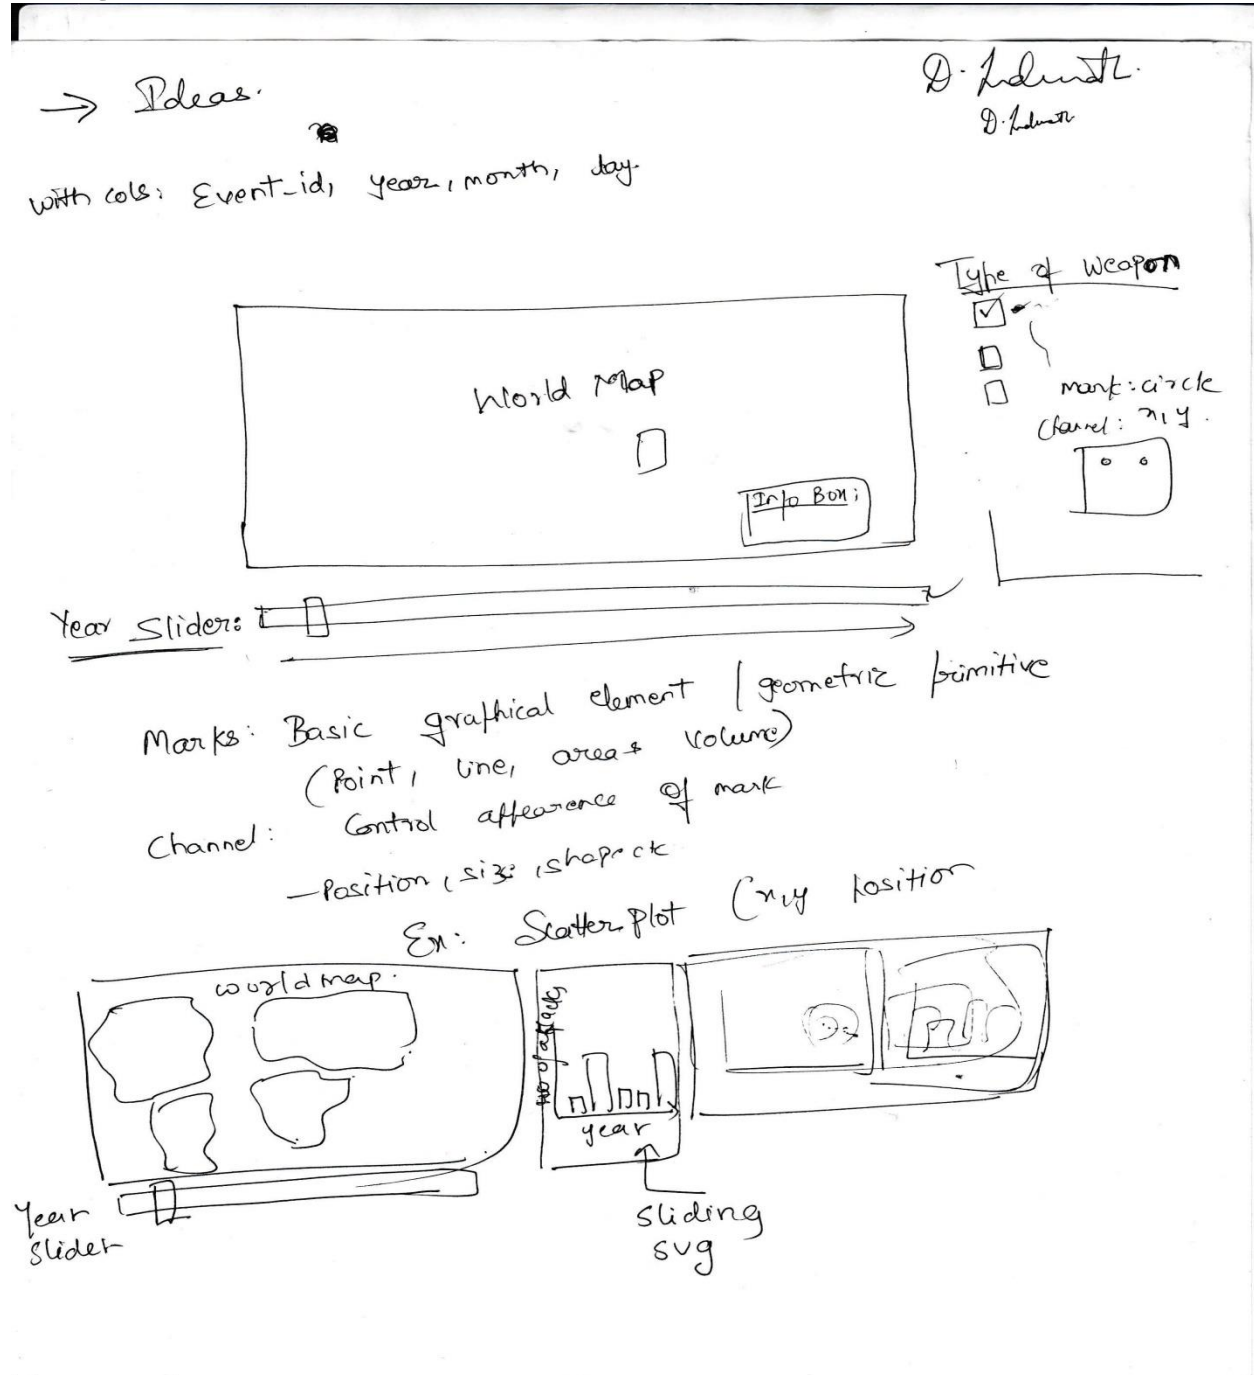 → Ideas.
with cols: Event_id, year, month, day.
Type of Weapon
World Map
mark: circle
Channel: x, y.
Info Box:
Year Slider:
Marks: Basic graphical element / geometric primitive
(Point, line, areas volume)
Channel: Control appearence of mark
- Position, size, shape etc
Ex: Scatter plot (x,y position
world map.
no of attacks
year
Year
Slider
sliding
svg